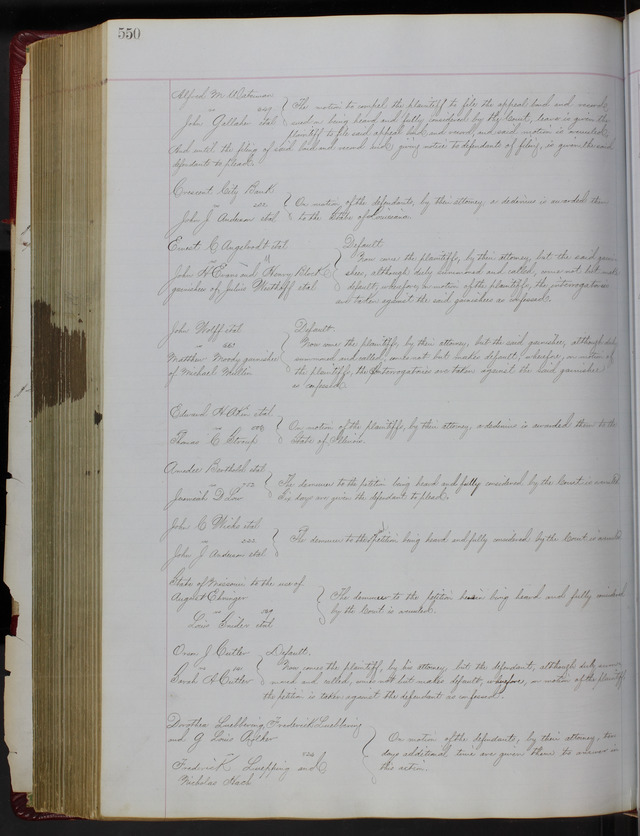 550
Alfred M Waterman
vs
John Gallaher etal
The motion to compel the plaintiff to file the appeal bond and record
being heard and fully considered by the Court, leave is given the
plaintiff to file said appeal bond and record, and said motion is annulled
And until the filing of said bond and record and giving notice to defendants of filing, is given the said
defendants to plead.
Crescent City Bank
vs 202
John J Anderson etal
On motion of the defendants, by their attorney, a dedimus is awarded them
to the State of Louisiana.
Ernest C Angelrodt etal
vs
John H Evans and Henry Block
garnishees of Julius etal
Default
Now come the plaintiffs, by their attorney, but the said garni-
shees, although duly summoned and called, come not but make
default; wherefore, on motion of the plaintiffs, the interrogatories
are taken against the said garnishees as confessed.
John Wolff etal
vs 661
Matthew Moody garnishee
of Michael
Default
Now come the plaintiffs, by their attorney, but the said garnishee, although duly
summoned and called, comes not but makes default; wherefore, on motion of
the plaintiffs, the interrogatories are taken against the said garnishee
as confessed.
Edward H etal
vs
Thomas C
On motion of the plaintiffs, by their attorney, a dedimus is awarded them to the
State of Illinois.
Amedee Berthold etal
vs 752
Jeremiah D Low
The demurrer to the petition being heard and fully considered by the Court is annulled
six days are given the defendant to plead.
John C etal
vs 222
John J Anderson etal
The demurrer to the petition being heard and fully considered by the Court is annulled
State of Missouri to the use of
August Ehninger
vs 189
Louis etal
The demurrer to the petition being heard and fully considered
by the Court is annulled.
Oran J Cutler
vs
Sarah A Cutler
Default.
Now comes the plaintiff, by his attorney, but the defendant, although duly summo-
ned and called, comes not but makes default; wherefore, on motion of the plaintiff
the petition is taken against the defendant as confessed.
Dorothea Luebbering, Frederick Luebbering
and G Louis
vs 724
Frederick and
Nicholas Hach
On motion of the defendants, by their attorney, ten
days additional time are given them to answer in
this action.